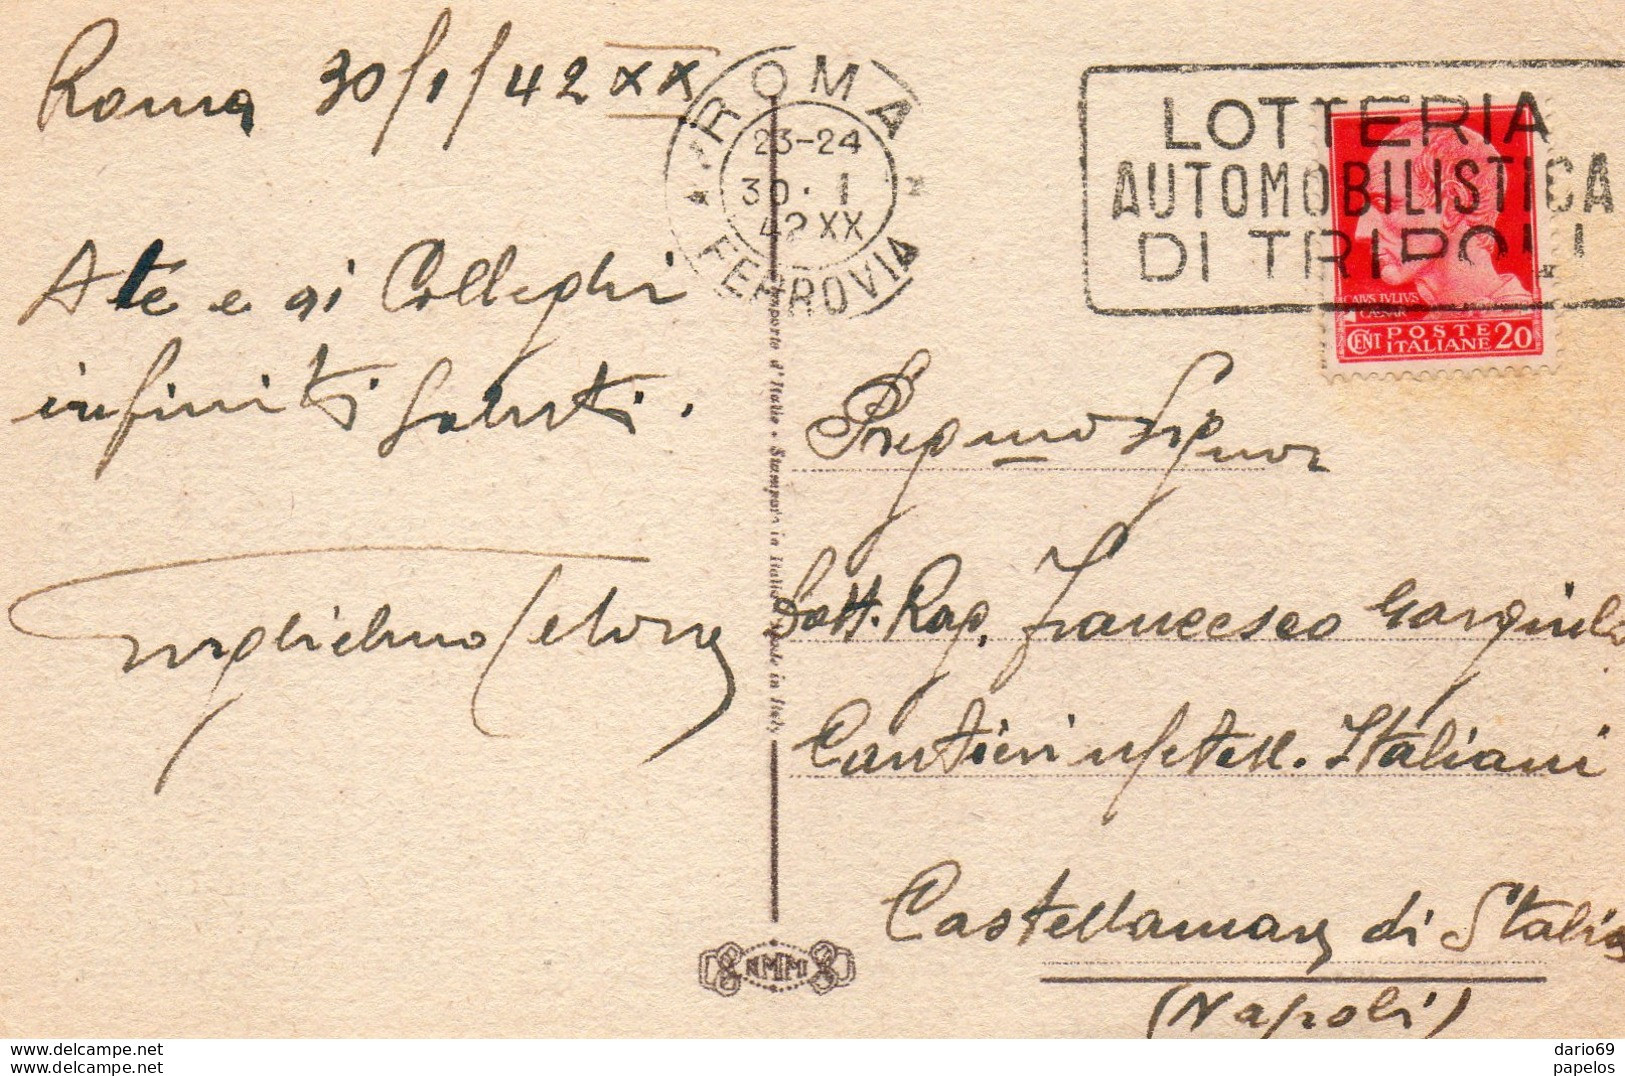 Roma 30/1/42 XX
A te e ai Colleghi
infiniti saluti.
Guglielmo
ROMA
23-24
30·1
42 XX
FERROVIA
LOTTERIA
AUTOMOBILISTICA
DI TRIPOLI
CAIVS IVLIVS
CAESAR
CENT POSTE ITALIANE 20
Preg.mo Signor
Dott. Rag. Francesco
Cantieri Metall. Italiani
Castellamare di Stabia
(Napoli)
Importé d'Italie · Stampato in Italia Made in Italy
NMM
www.delcampe.net
www.delcampe.com
dario69
papelos